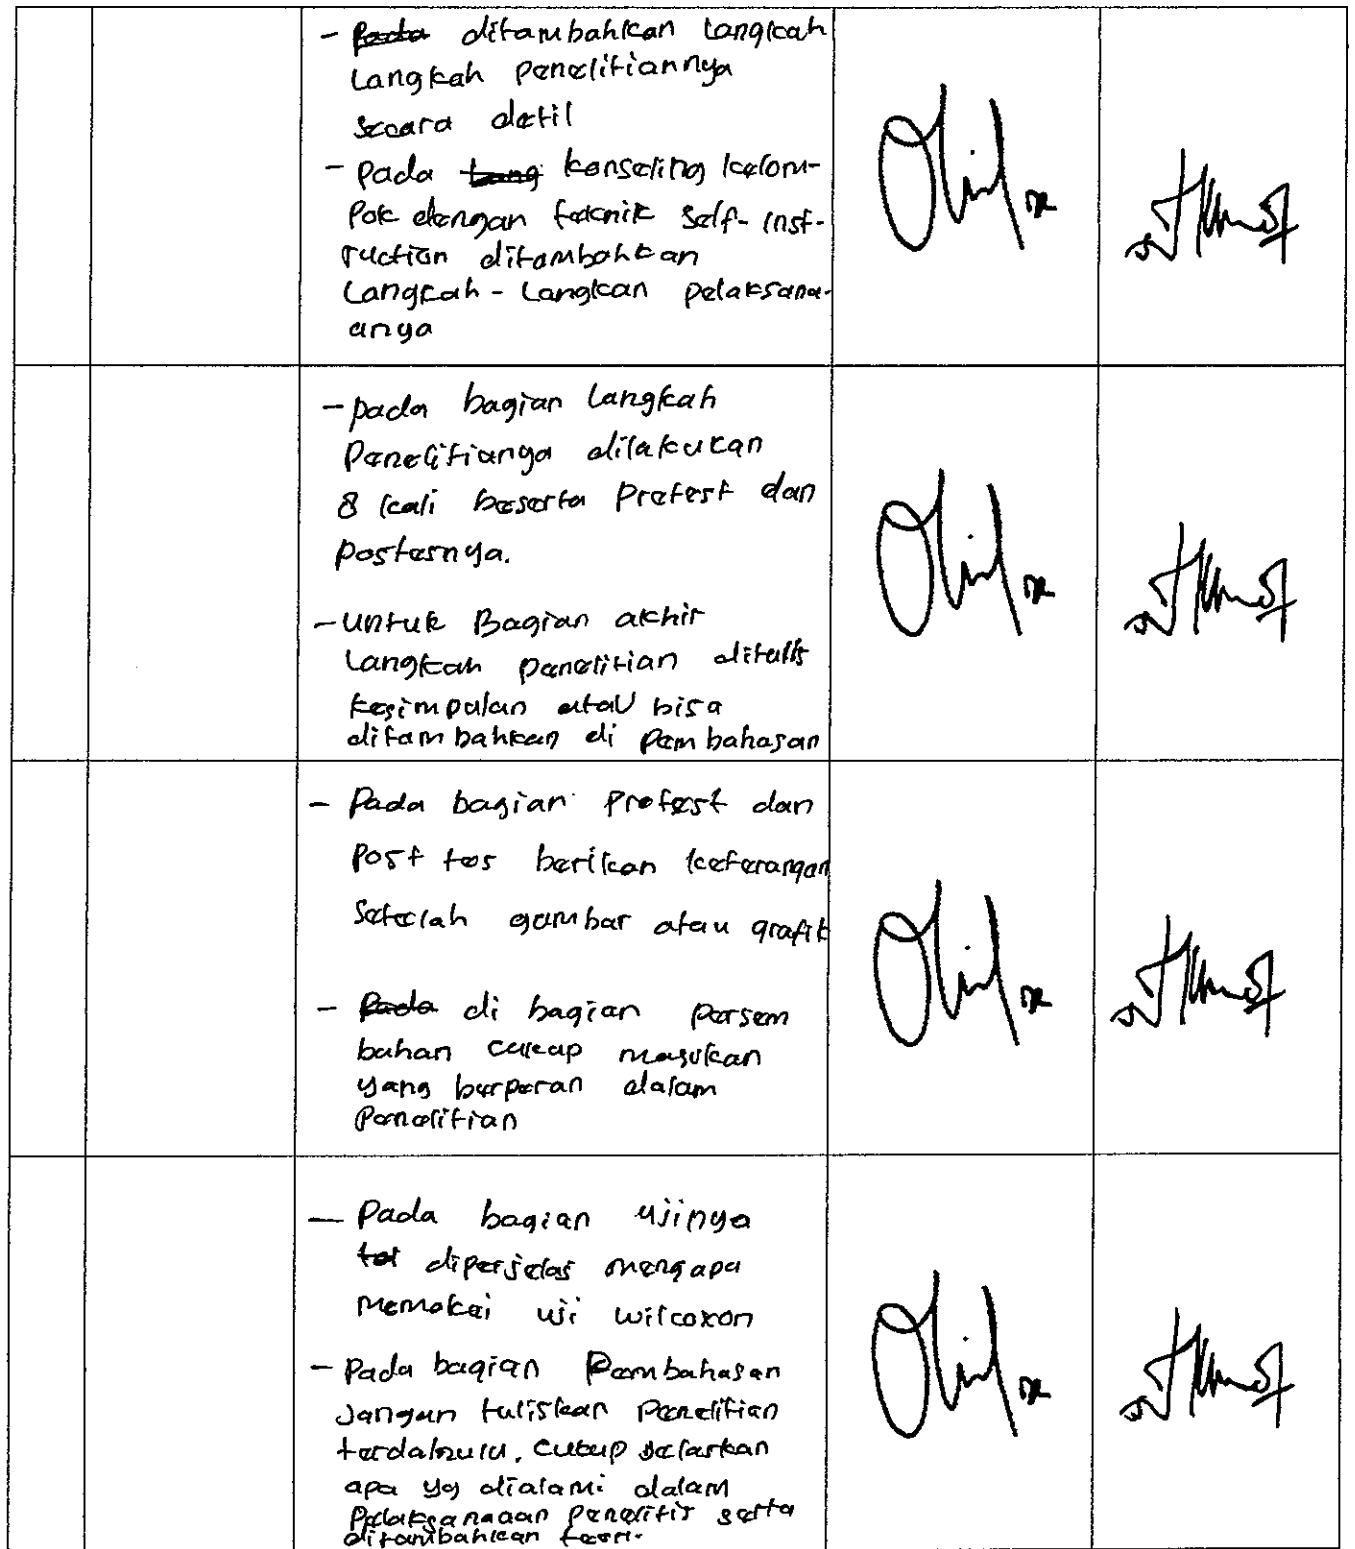 - Pada ditambahkan langkah
langkah penelitiannya
secara detil
- pada lang konseling kelom-
pok dengan teknik self-inst-
ruction ditambahkan
langkah - langkan pelaksana-
anya
- pada bagian langkah
penelitianya dilakukan
8 kali beserta pretest dan
postesnya.
- untuk Bagian akhir
langkah penelitian ditulis
kesimpulan atau bisa
ditambahkan di pembahasan
- Pada bagian pretest dan
post tes berikan keterangan
setelah gambar atau grafik
- Pada di bagian persem
bahan cukup masukan
yang berperan dalam
penelitian
- Pada bagian ujinya
diperjelas mengapa
memakai uji wilcoxon
- pada bagian Pembahasan
jangan tuliskan penelitian
terdahulu. cukup jelaskan
apa yg dialami dalam
pelaksanaaan penelitis serta
ditambahkan teori.